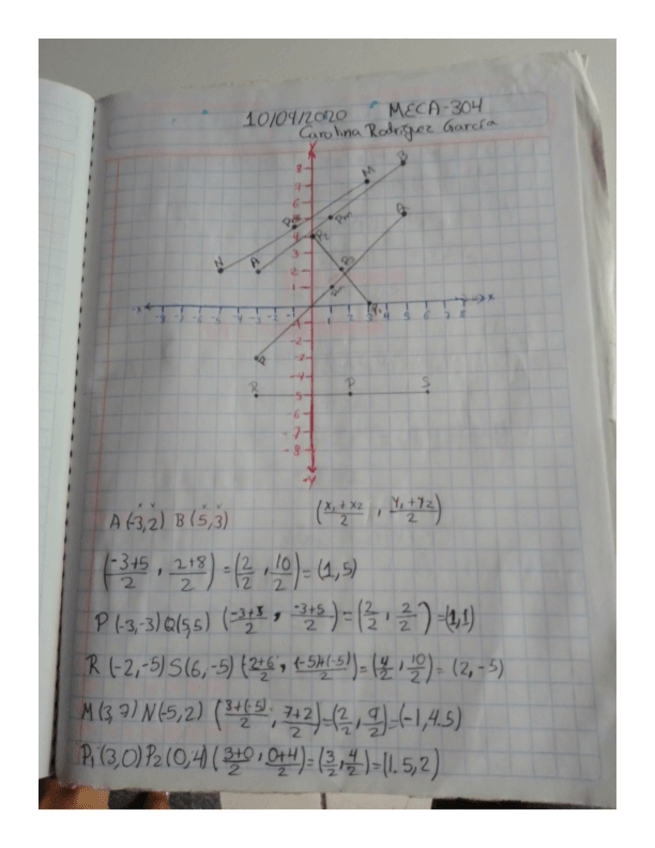 10/09/2020 MECA-304
Carolina Rodríguez García
Y
8
7
6
5
4
3
2
1
M
B
Q
Pm
P2
N
A
-X -8 -7 -6 -5 -4 -3 -2 -1 1 2 3 4 5 6 7 8 X
P1
-1
-2
-3
-4
-5
-6
-7
-8
-Y
P
R P S
A (-3,2) B (5,3) (x₁+x₂/2 , y₁+y₂/2)
(-3+5/2 , 2+8/2) = (2/2 , 10/2) = (1,5)
P (-3,-3) Q (5,5) (-3+5/2 , -3+5/2) = (2/2 , 2/2) = (1,1)
R (-2,-5) S (6,-5) (2+6/2 , (-5)+(-5)/2) = (4/2 , 10/2) = (2,-5)
M (3,7) N (-5,2) (3+(-5)/2 , 7+2/2) = (2/2 , 9/2) = (-1,4.5)
P₁ (3,0) P₂ (0,4) (3+0/2 , 0+4/2) = (3/2 , 4/2) = (1.5,2)